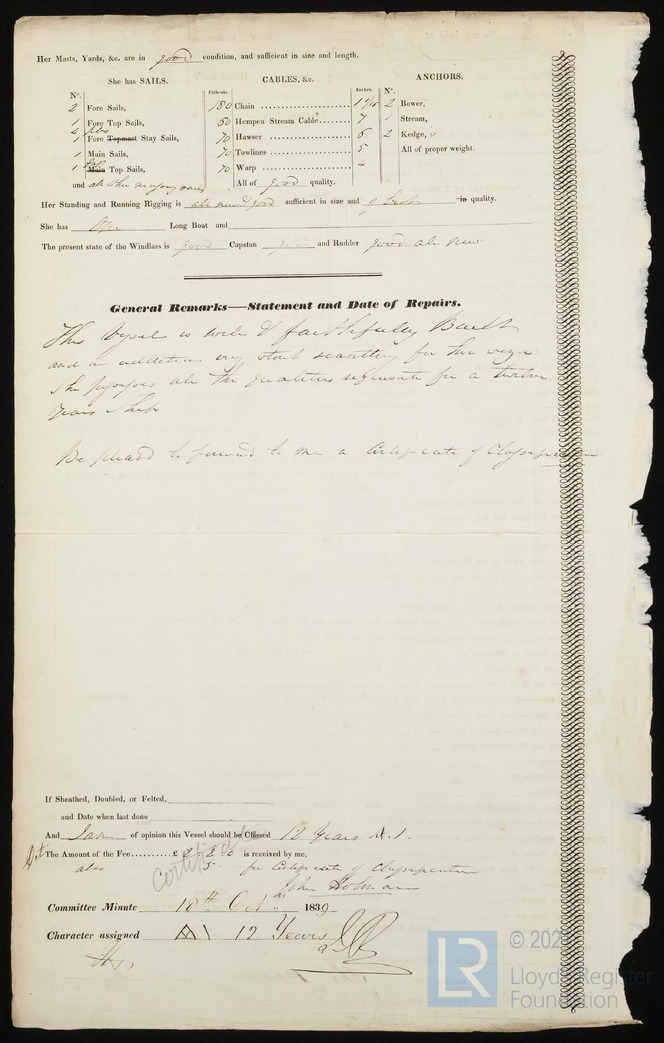 Her Masts, Yards, &c. are in good condition, and sufficient in size and length.
She has SAILS.
CABLES, &c.
ANCHORS.
N°.
Fathoms.
Inches.
N°.
2 Fore Sails,
180 Chain
1 1/16
2 Bower,
1 Fore Top Sails,
60 Hempen Stream Cable
7
1 Stream,
4 Jibs
1 Fore Topmast Stay Sails,
70 Hawser
6
2 Kedge,
1 Main Sails,
70 Towlines
5
All of proper weight.
1 Main Top Sails,
70 Warp
4
and all other
All of good quality.
Her Standing and Running Rigging is all new & good sufficient in size and of best in quality.
She has One Long Boat and
The present state of the Windlass is good Capstan good and Rudder good all new
General Remarks—Statement and Date of Repairs.
This Vessel is well & faithfully Built
and in addition very stout scantling for her size
She possesses all the qualities requisite for a twelve
years Ship
Be pleased to forward to me a Certificate of Classification
If Sheathed, Doubled, or Felted,
and Date when last done
And I am of opinion this Vessel should be Classed 12 Years A.1.
The Amount of the Fee £ 2 2 0 is received by me,
also 5 for Certificate of Classification
Certificate
John Holman
Committee Minute 18th Oct 1839
Character assigned A 1 12 Years
LR
© 202
Lloyd's Register
Foundation